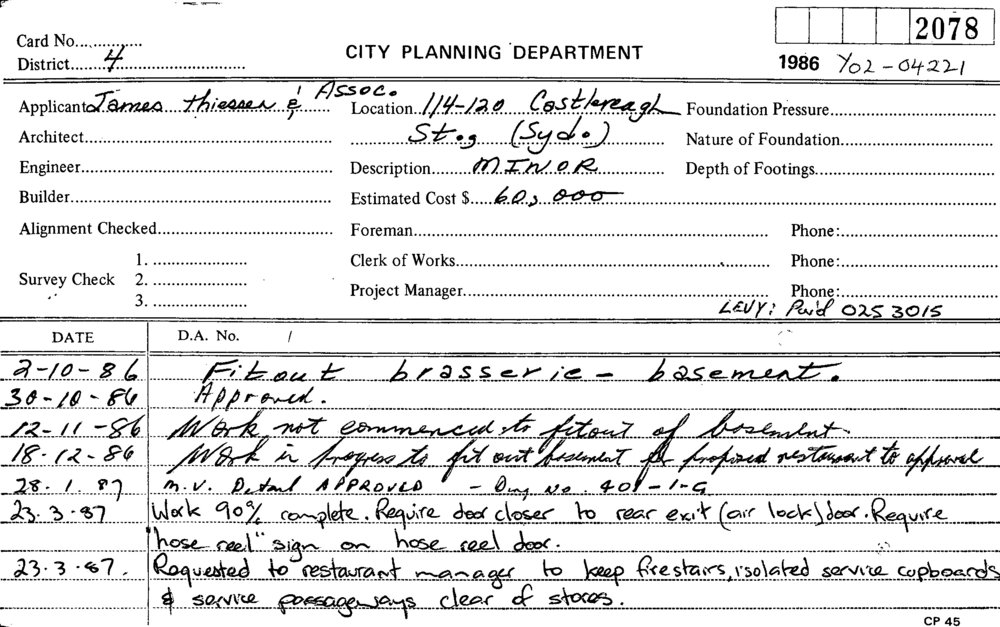 2078
Card No.
District 4
CITY PLANNING DEPARTMENT
1986 Y02-04221
Applicant James Thiessen & Assoc.
Location 114-120 Castlereagh
Foundation Pressure
Architect
St., (Syd.)
Nature of Foundation
Engineer
Description MINOR
Depth of Footings
Builder
Estimated Cost $ 60,000
Alignment Checked
Foreman
Phone:
Survey Check
1.
2.
3.
Clerk of Works
Phone:
Project Manager
Phone:
LEVY: Paid 025 3015
DATE D.A. No. /
2-10-86 Fitout brasserie - basement.
30-10-86 Approved.
12-11-86 Work not commenced to fitout of basement.
18-12-86 Work in progress to fit out basement for proposed restaurant to approval
28.1.87 M.V. Detail APPROVED - Dwg No 401-1-G
23.3.87 Work 90% complete. Require door closer to rear exit (air lock) door. Require
"hose reel" sign on hose reel door.
23.3.87. Requested to restaurant manager to keep firestairs, isolated service cupboards
& service passageways clear of stores.
CP 45